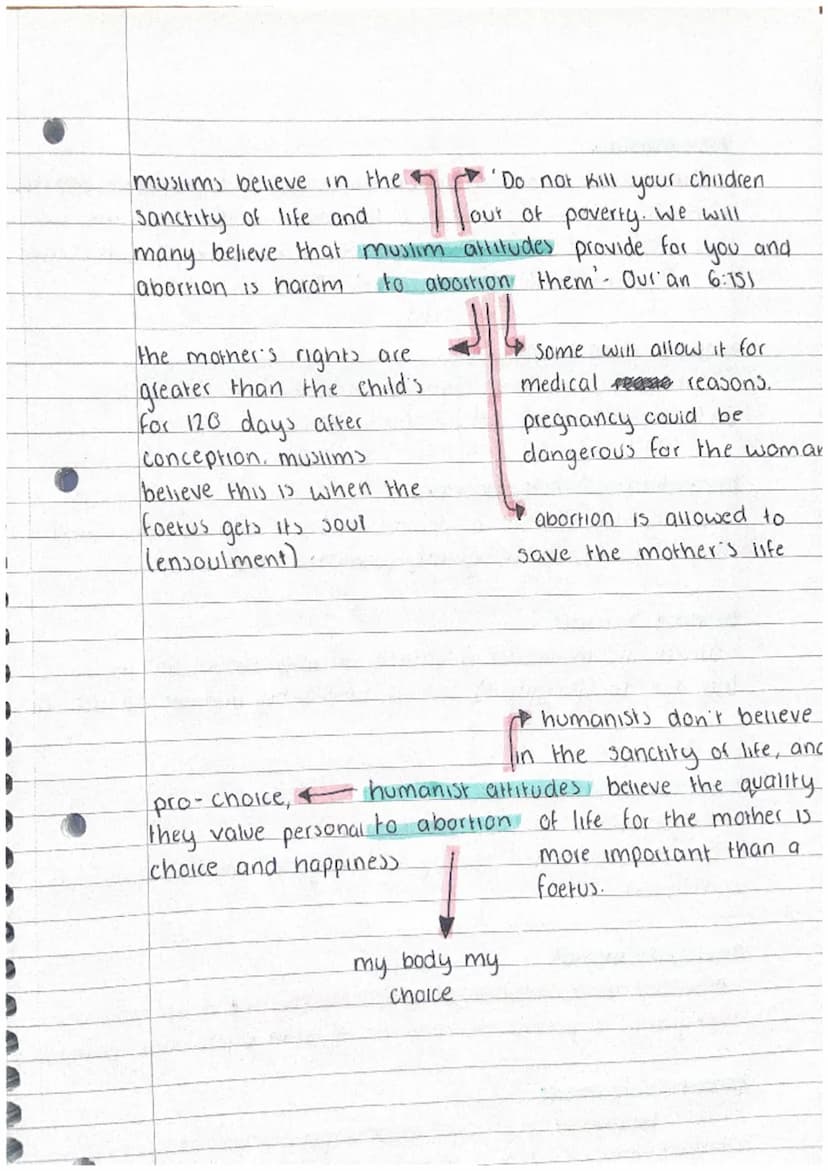 muslims believe in the
sanctity of life and
many believe that
abortion is haram
'Do not kill your children
out of poverty. We will
provide for you and
them' - Qur'an 6:151
muslim attitudes
to abortion
the mother's rights are
greater than the child's
for 120 days after
conception. muslims
believe this is when the
foetus gets its soul
(ensoulment).
some will allow it for
medical reasons.
pregnancy could be
dangerous for the woman
abortion is allowed to
save the mother's life
humanists don't believe
in the sanctity of life, and
believe the quality
of life for the mother is
more important than a
foetus.
humanist attitudes
to abortion
pro-choice,
they value personal
choice and happiness
my body my
choice